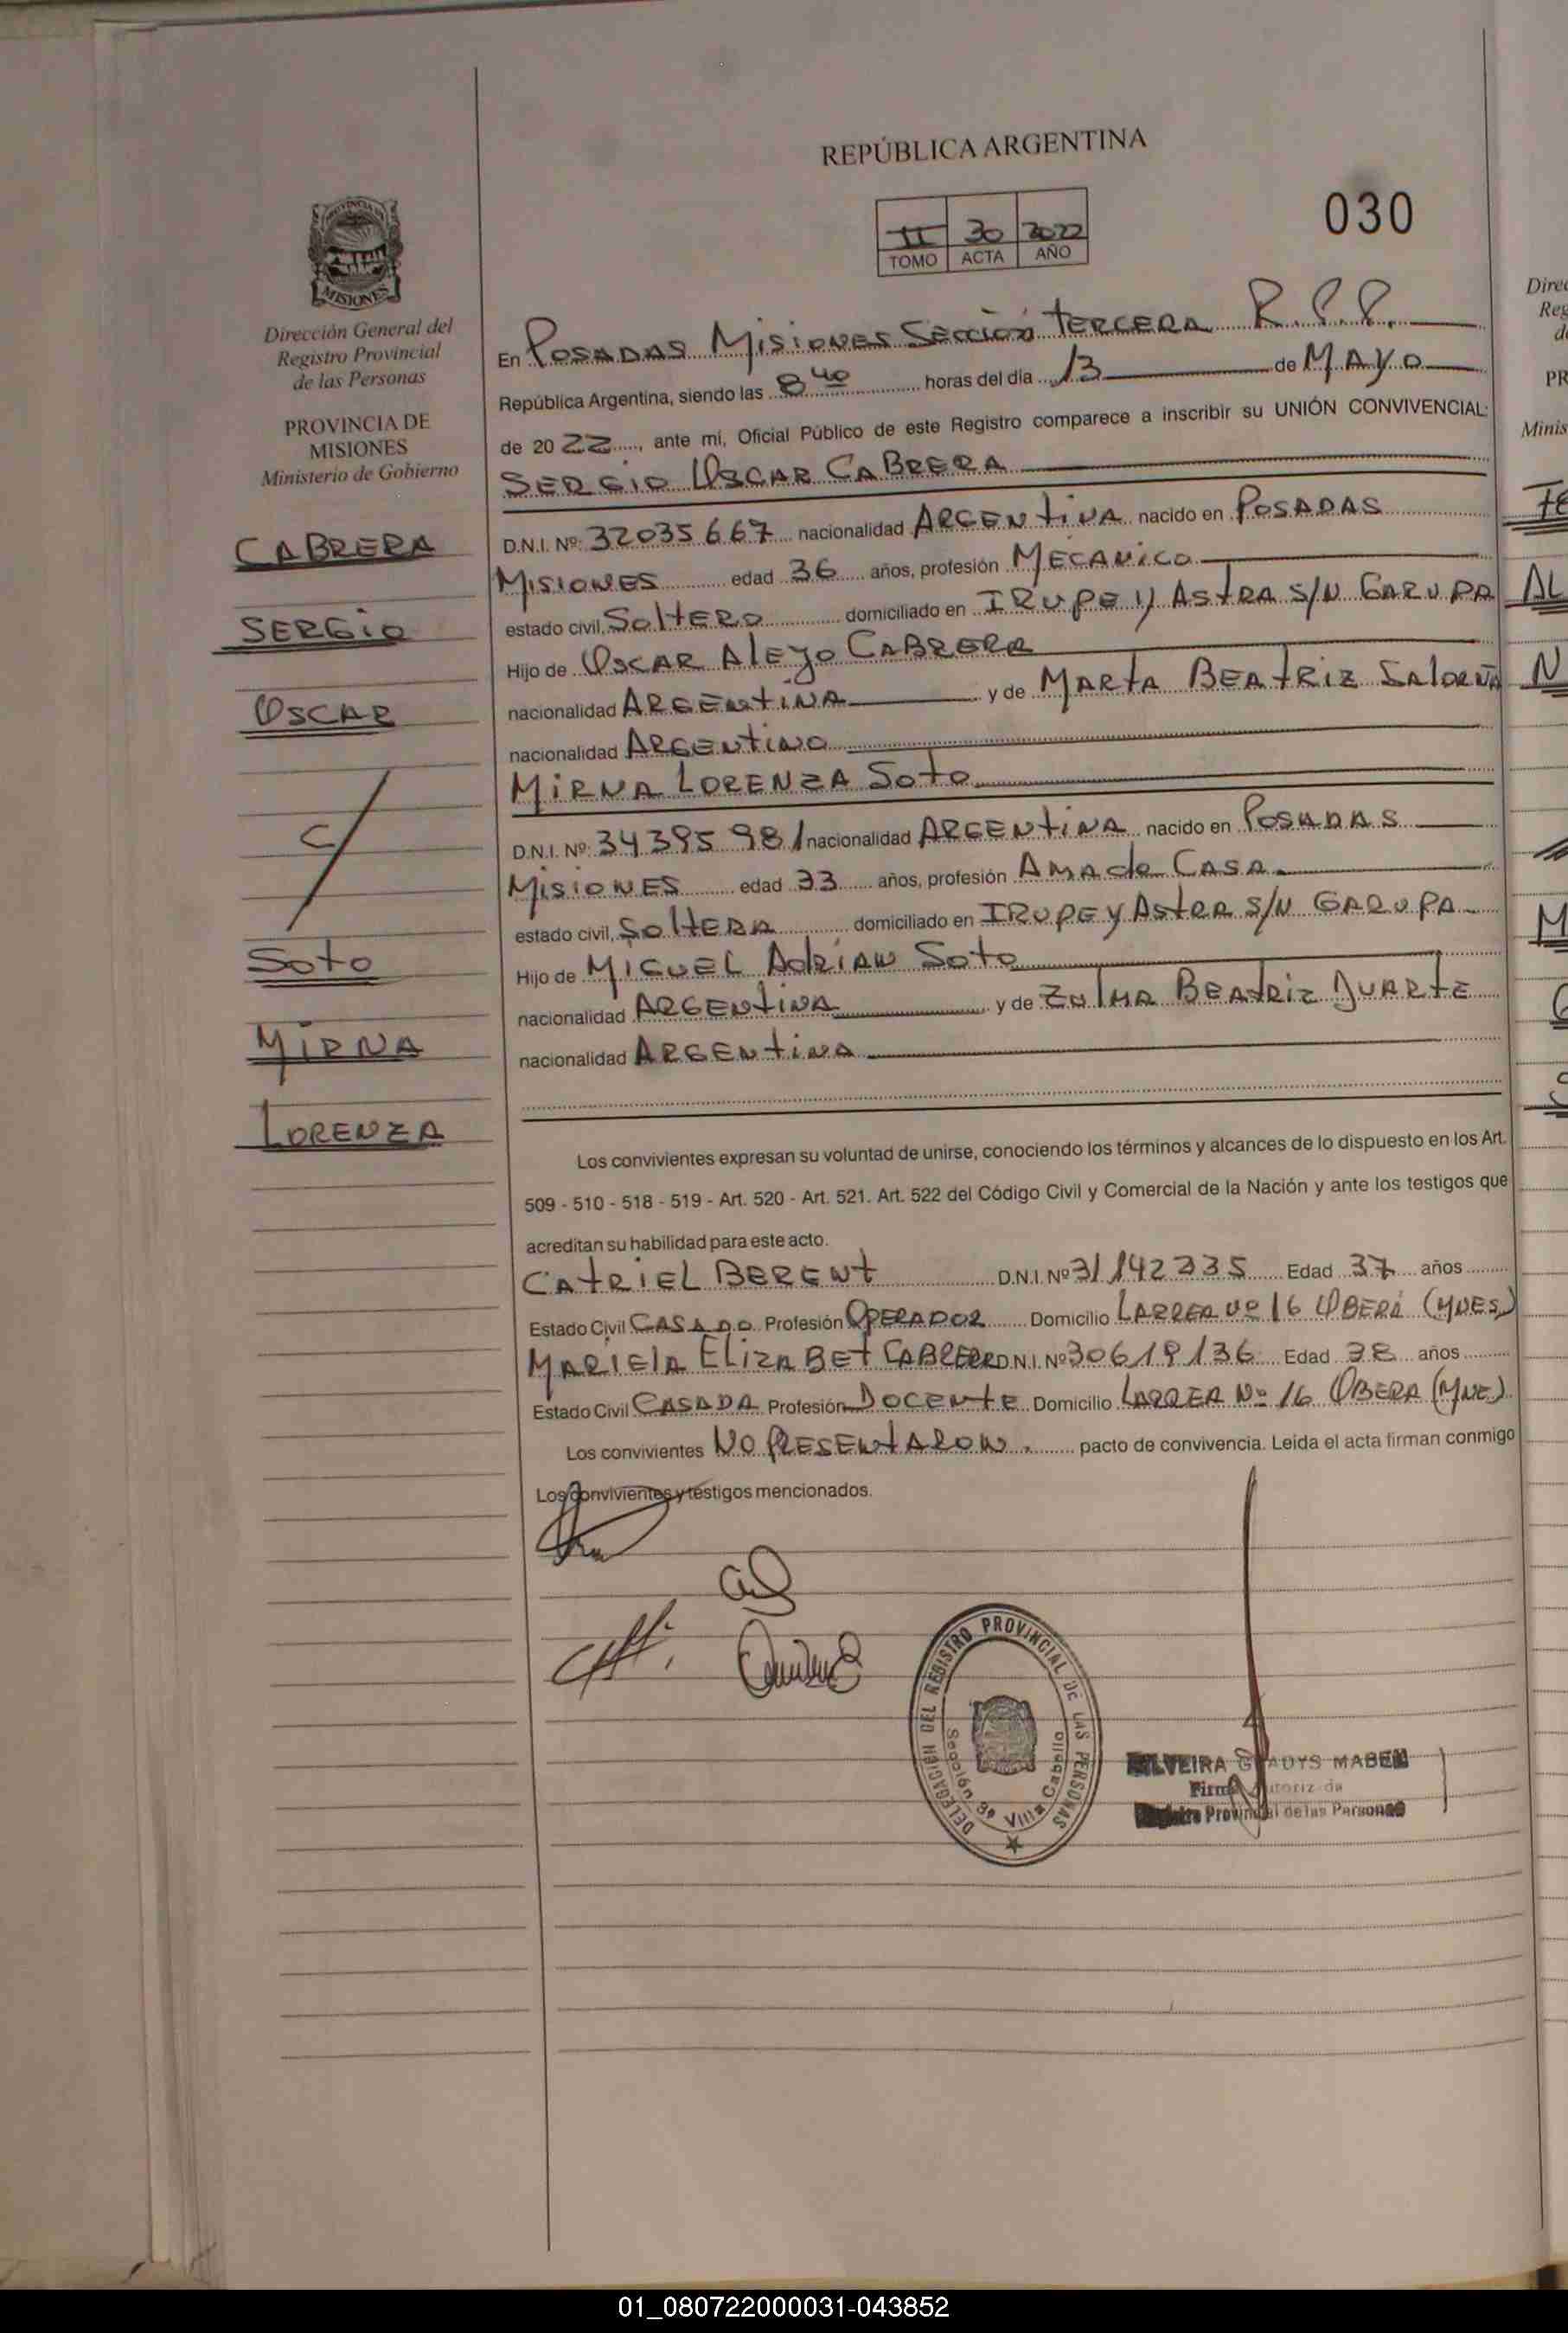 REPÚBLICA ARGENTINA
030
II 30 2022
TOMO ACTA AÑO
MISIONES
Dirección General del
Registro Provincial
de las Personas
PROVINCIA DE
MISIONES
Ministerio de Gobierno
CABRERA
SERGIO
OSCAR
C/
Soto
MIRNA
LORENZA
En POSADAS MISIONES SECCIÓN TERCERA R.P.P.
República Argentina, siendo las 8 40 horas del día 13 de MAYO
de 2022, ante mí, Oficial Público de este Registro comparece a inscribir su UNIÓN CONVIVENCIAL:
SERGIO OSCAR CABRERA
D.N.I. Nº: 32035667 nacionalidad ARGENTINA nacido en POSADAS
MISIONES edad 36 años, profesión MECANICO
estado civil, SOLTERO domiciliado en IRUPE y ASTRA S/N GARUPA
Hijo de OSCAR ALEJO CABRERA
nacionalidad ARGENTINA y de MARTA BEATRIZ
nacionalidad ARGENTINO
MIRNA LORENZA SOTO
D.N.I. Nº: 34395981 nacionalidad ARGENTINA nacido en POSADAS
MISIONES edad 33 años, profesión AMA de CASA
estado civil, SOLTERA domiciliado en IRUPE y ASTRA S/N GARUPA
Hijo de MIGUEL ADRIAN SOTO
nacionalidad ARGENTINA y de ZULMA BEATRIZ DUARTE
nacionalidad ARGENTINA
Los convivientes expresan su voluntad de unirse, conociendo los términos y alcances de lo dispuesto en los Art.
509 - 510 - 518 - 519 - Art. 520 - Art. 521. Art. 522 del Código Civil y Comercial de la Nación y ante los testigos que
acreditan su habilidad para este acto.
CATRIEL BERENT D.N.I. Nº 31142335 Edad 37 años
Estado Civil CASADO Profesión OPERADOR Domicilio LARREA Nº 16 OBERÁ (MNES)
MARIELA ELIZABET CABRERA D.N.I. Nº 30619136 Edad 38 años
Estado Civil CASADA Profesión DOCENTE Domicilio LARREA Nº 16 OBERA (MNE)
Los convivientes NO PRESENTARON. pacto de convivencia. Leida el acta firman conmigo
Los convivientes y testigos mencionados.
DELEGACIÓN DEL REGISTRO PROVINCIAL DE LAS PERSONAS
Sección 3ª Villa Cabello
SILVEIRA GLADYS MABEL
Firma Autorizada
Registro Provincial de las Personas
01_080722000031-043852